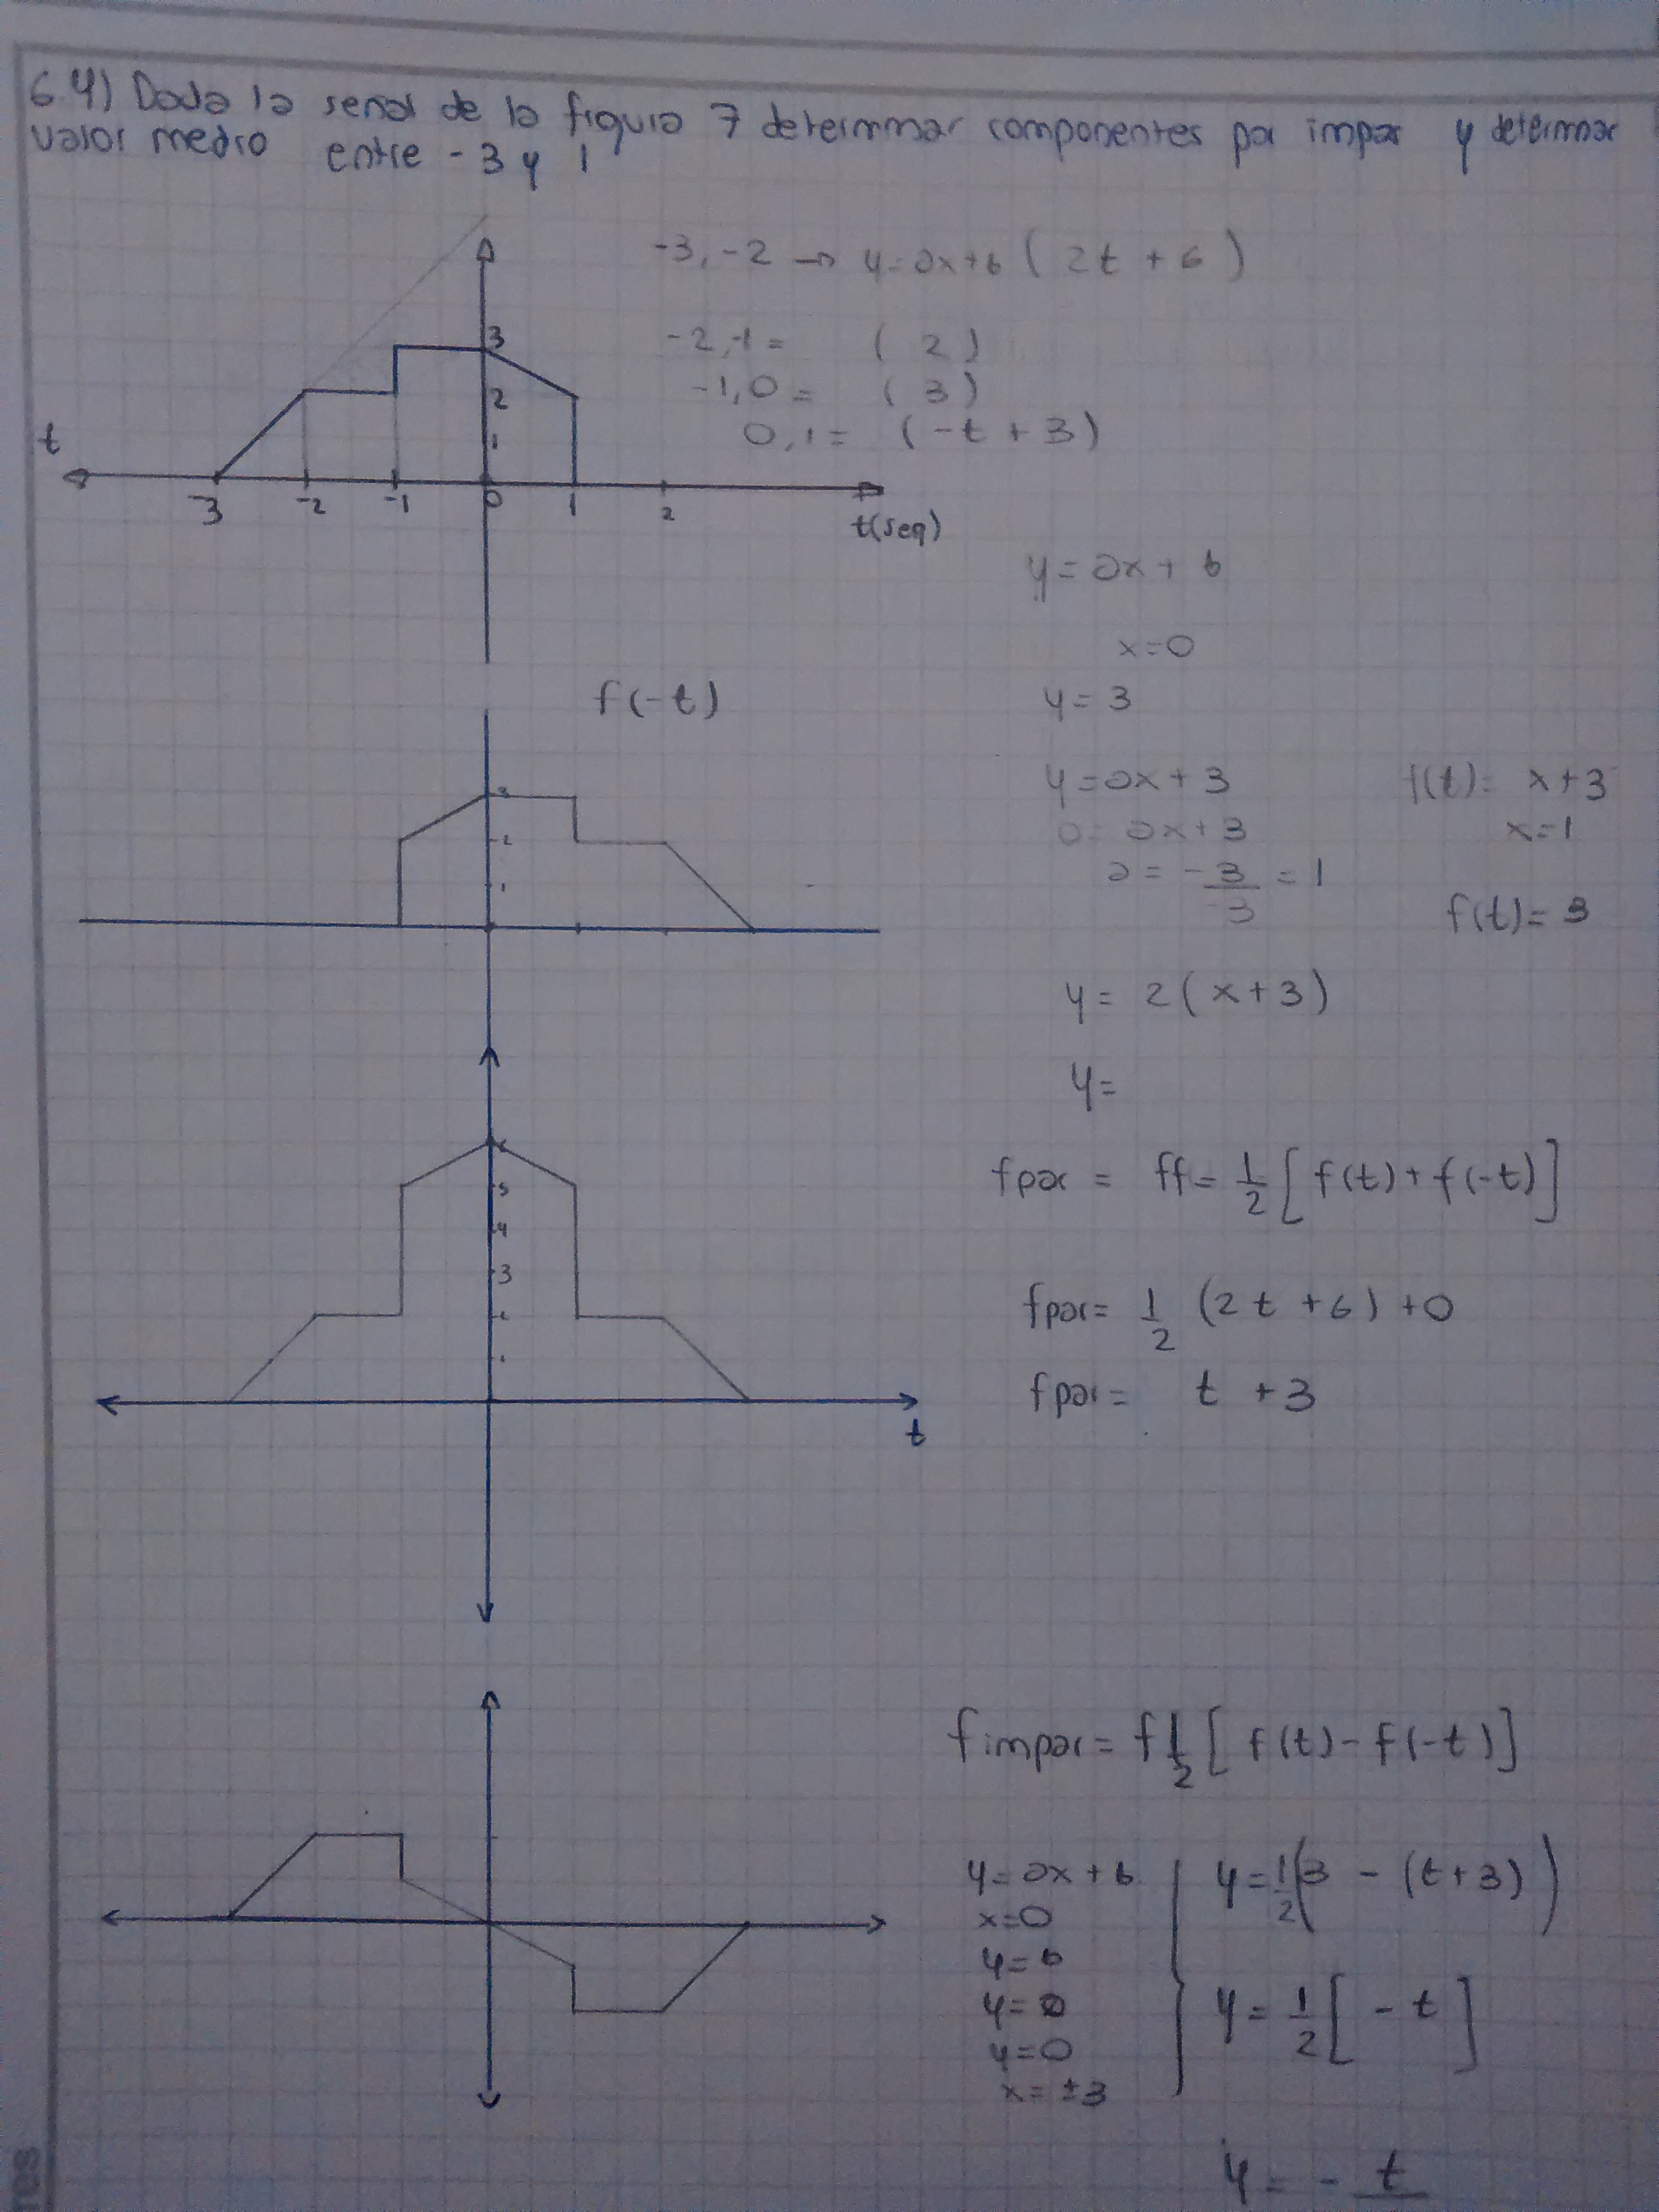 6.4) Dada la señal de la figura 7 determinar componentes par impar y determinar
valor medio entre -3 y 1
-3, -2 → y = ax + b ( 2t + 6 )
-2, -1 = ( 2 )
-1, 0 = ( 3 )
0, 1 = ( -t + 3 )
3
2
1
t
-3 -2 -1 0 1 2
t(seg)
y = ax + b
x = 0
y = 3
f(-t)
y = ax + 3
0 = ax + 3
a = -3/-3 = 1
f(t) = x + 3
x = 1
f(t) = 3
3
2
1
y = 2(x + 3)
y =
6
5
4
3
2
1
t
fpar = ff = 1/2 [ f(t) + f(-t) ]
fpar = 1/2 (2t + 6) + 0
fpar = t + 3
fimpar = f 1/2 [ f(t) - f(-t) ]
y = ax + b
x = 0
y = b
y = 0
y = 0
x = ±3
y = 1/2 (3 - (t + 3))
y = 1/2 [ - t ]
y = - t